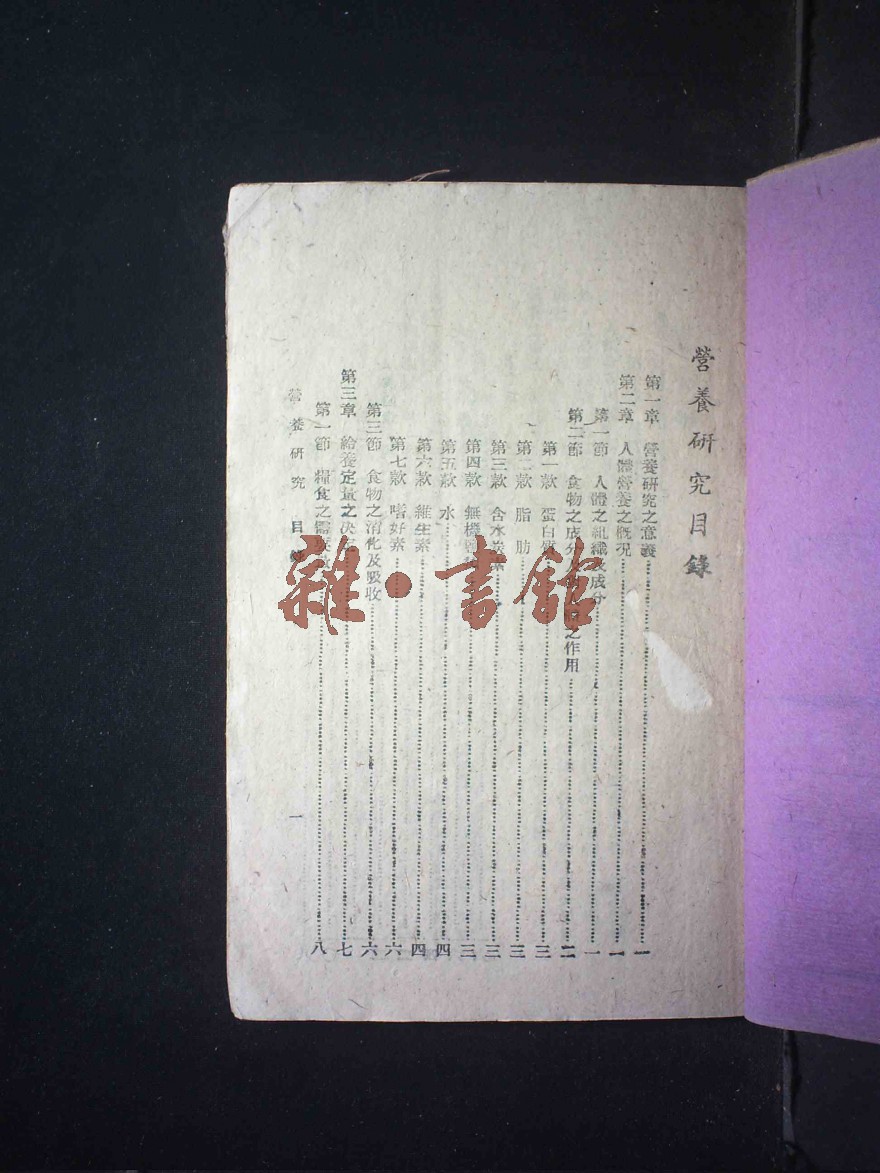 營養研究目錄
第一章 營養研究之意義……一
第二章 人體營養之概況……一
第一節 人體之組織及成分……一
第二節 食物之成分之作用……二
第一款 蛋白質……三
第二款 脂肪……三
第三款 含水炭素……三
第四款 無機……三
第五款 水……四
第六款 維生素……四
第七款 嗜好素……六
第三節 食物之消化及吸收……六
第三章 給養定量之決定……七
第一節 糧食之需要……八
營養研究 目錄
一
雜·書館